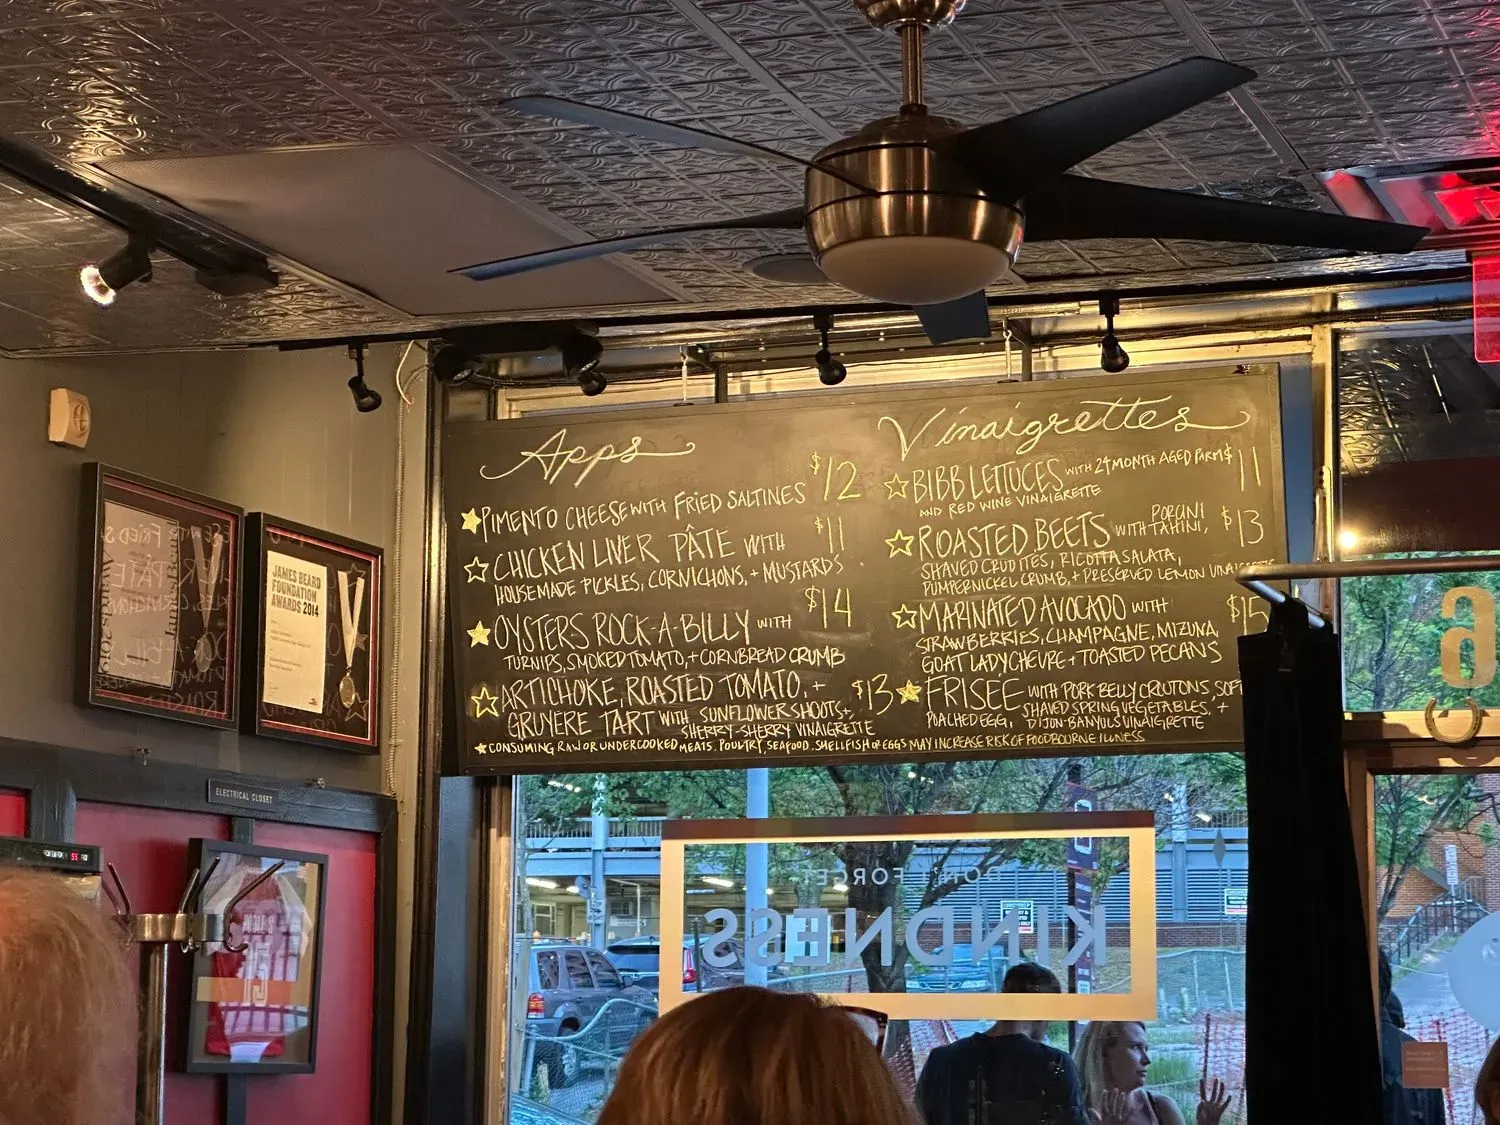 Apps
PIMENTO CHEESE WITH FRIED SALTINES $12
CHICKEN LIVER PÂTE WITH $11
HOUSEMADE PICKLES, CORNICHONS, + MUSTARDS
OYSTERS ROCK-A-BILLY WITH $14
TURNIPS, SMOKED TOMATO, + CORNBREAD CRUMB
ARTICHOKE, ROASTED TOMATO, + $13
GRUYERE TART WITH SUNFLOWER SHOOTS +
SHERRY-SHERRY VINAIGRETTE
Vinaigrettes
BIBB LETTUCES WITH 24 MONTH AGED PARM $11
AND RED WINE VINAIGRETTE
ROASTED BEETS WITH PORCINI TAHINI, $13
SHAVED CRUDITES, RICOTTA SALATA,
PUMPERNICKEL CRUMB, + PRESERVED LEMON
MARINATED AVOCADO WITH $15
STRAWBERRIES, CHAMPAGNE, MIZUNA,
GOAT LADY CHEVRE + TOASTED PECANS
FRISÉE WITH PORK BELLY CROUTONS, SOFT
POACHED EGG, SHAVED SPRING VEGETABLES, +
DIJON-BANYULS VINAIGRETTE
CONSUMING RAW OR UNDERCOOKED MEATS, POULTRY, SEAFOOD, SHELLFISH OR EGGS MAY INCREASE RISK OF FOODBOURNE ILLNESS
JAMES BEARD
FOUNDATION
AWARDS 2014
ELECTRICAL CLOSET
15
DON'T FORGET
KINDNESS
6